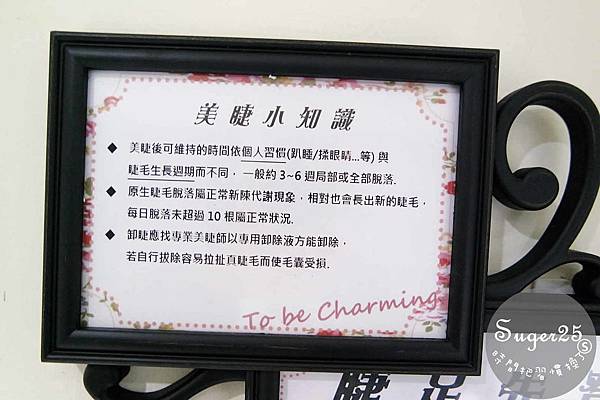 美睫小知識
◆ 美睫後可維持的時間依個人習慣(趴睡/揉眼睛...等) 與
睫毛生長週期而不同， 一般約 3~6 週局部或全部脫落.
◆ 原生睫毛脫落屬正常新陳代謝現象，相對也會長出新的睫毛，
每日脫落未超過 10 根屬正常狀況.
◆ 卸睫應找專業美睫師以專用卸除液方能卸除，
若自行拔除容易拉扯真睫毛而使毛囊受損.
To be Charming
Suger25
時間把習慣換了
睫足